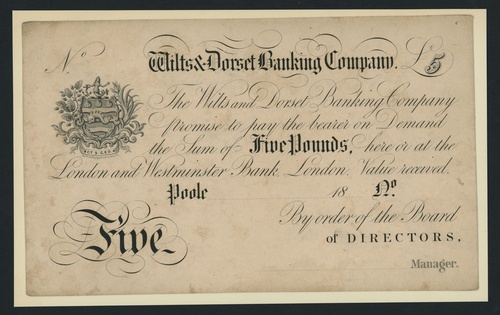 No
Wilts & Dorset Banking Company. £5
The Wilts and Dorset Banking Company
promise to pay the bearer on Demand
the Sum of Five Pounds, here or at the
London and Westminster Bank, London. Value received.
Poole 18 No.
By order of the Board
of DIRECTORS,
Five
Manager.